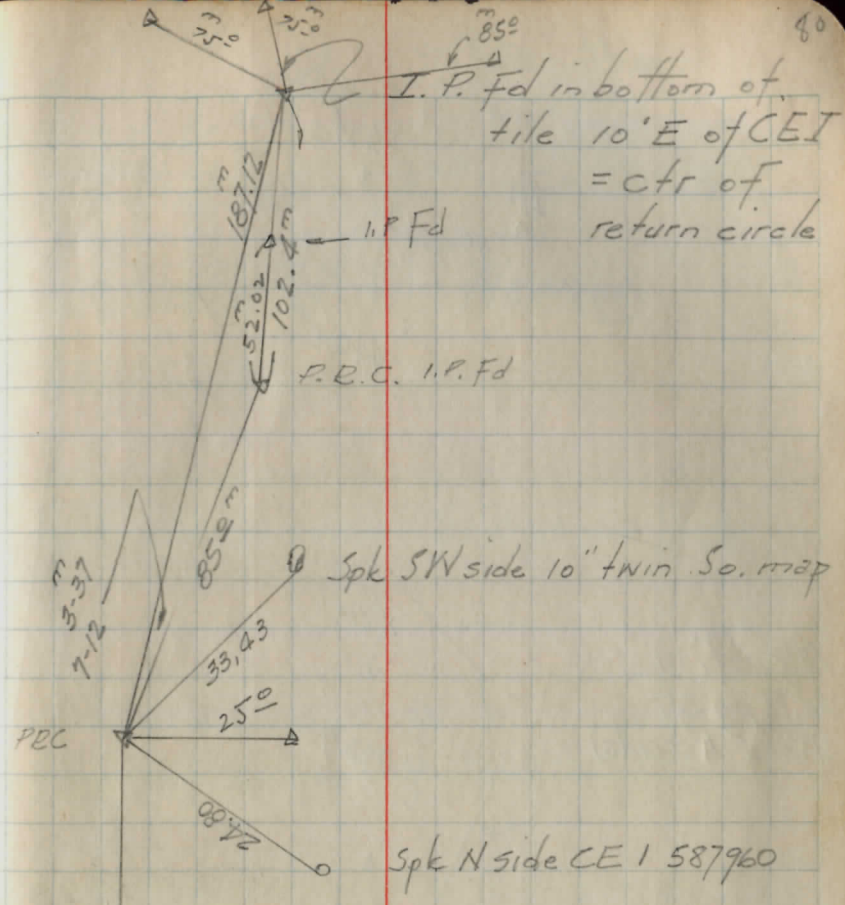 80
m
75º
m
75º
m
85º
I. P. Fd in bottom of
tile 10' E of CEI
= ctr of
return circle
m
187.12
I.P Fd
m
52.02
102.4 m
P.R.C. I.P. Fd
85º m
Spk SW side 10" twin So. map
m
3-37
7-12
33,43
25º
PRC
24.80
Spk N side CE I 587960